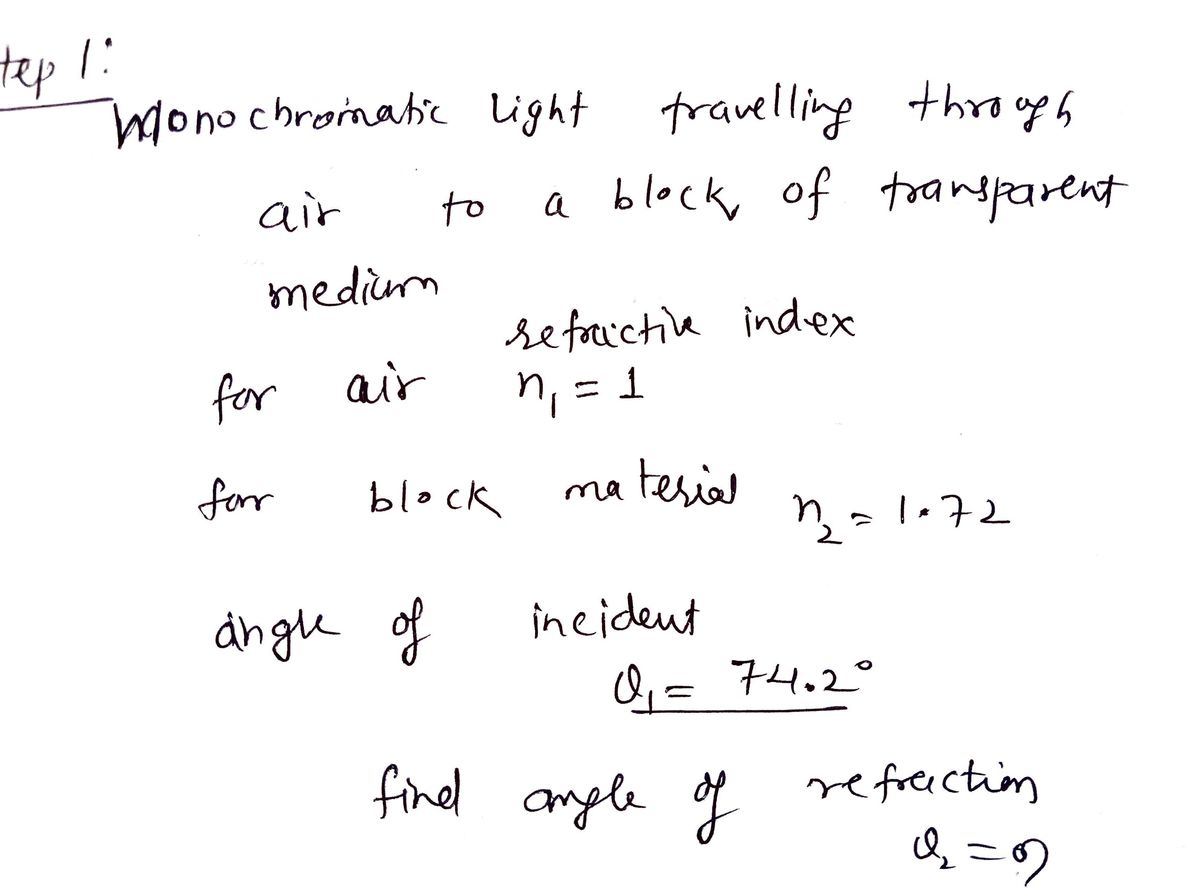 tep 1:
Monochromatic light travelling through
air to a block of transparent
medium
refractive index
for air n₁ = 1
for block material n₂ = 1.72
angle of incident
θ₁ = 74.2°
find angle of refraction
θ₂ = ?